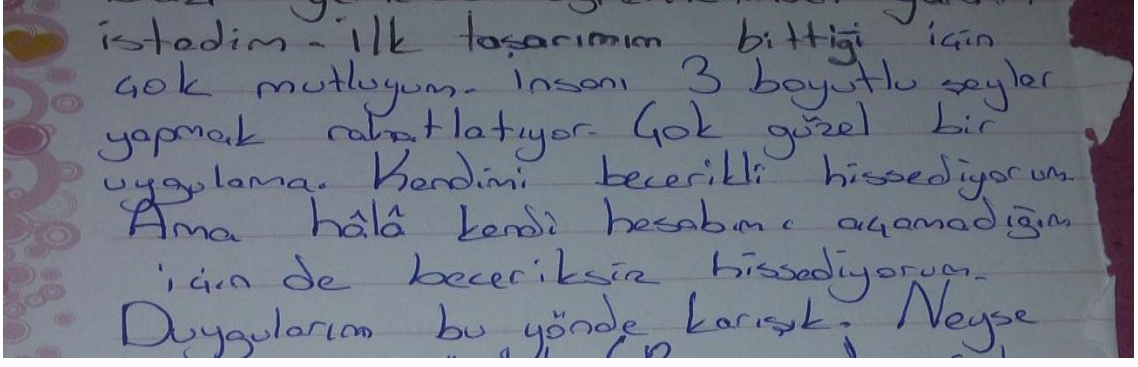 istedim - ilk tasarımım bittiği için
çok mutluyum. İnsanı 3 boyutlu şeyler
yapmak rahatlatıyor. Çok güzel bir
uygulama. Kendimi becerikli hissediyorum.
Ama hâlâ kendi hesabımı açamadığım
için de beceriksiz hissediyorum.
Duygularım bu yönde karışık. Neyse